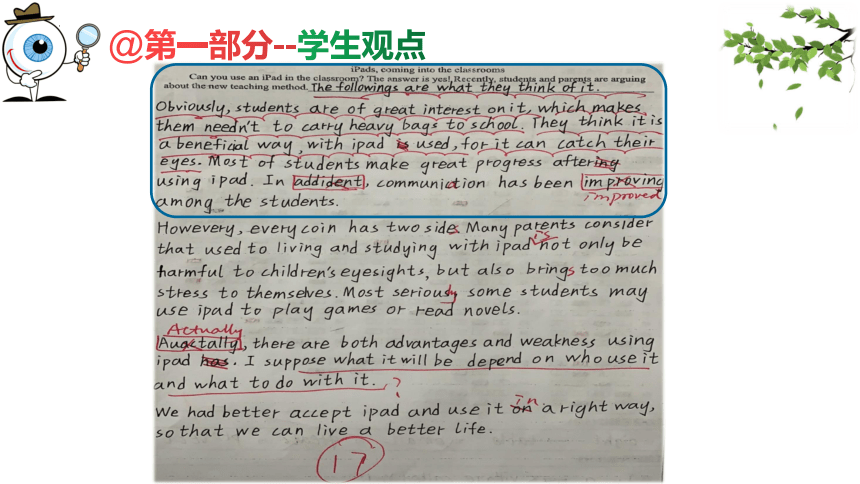 @第一部分--学生观点
iPads, coming into the classrooms
Can you use an iPad in the classroom? The answer is yes! Recently, students and parents are arguing
about the new teaching method. The followings are what they think of it.
Obviously, students are of great interest on it, which makes
them needn't to carry heavy bags to school. They think it is
a beneficial way, with ipad is used, for it can catch their
eyes. Most of students make great progress aftering
using ipad. In addident, communiction has been improving
improved
among the students.
Howevery, every coin has two sides. Many parents consider
that used to living and studying with ipad is not only be
harmful to children's eyesights, but also brings too much
stress to themselves. Most seriously some students may
use ipad to play games or read novels.
Actually
Auctally, there are both advantages and weakness using
ipad has. I suppose what it will be depend on who use it
and what to do with it. ?
in
We had better accept ipad and use it on a right way,
so that we can live a better life.
17